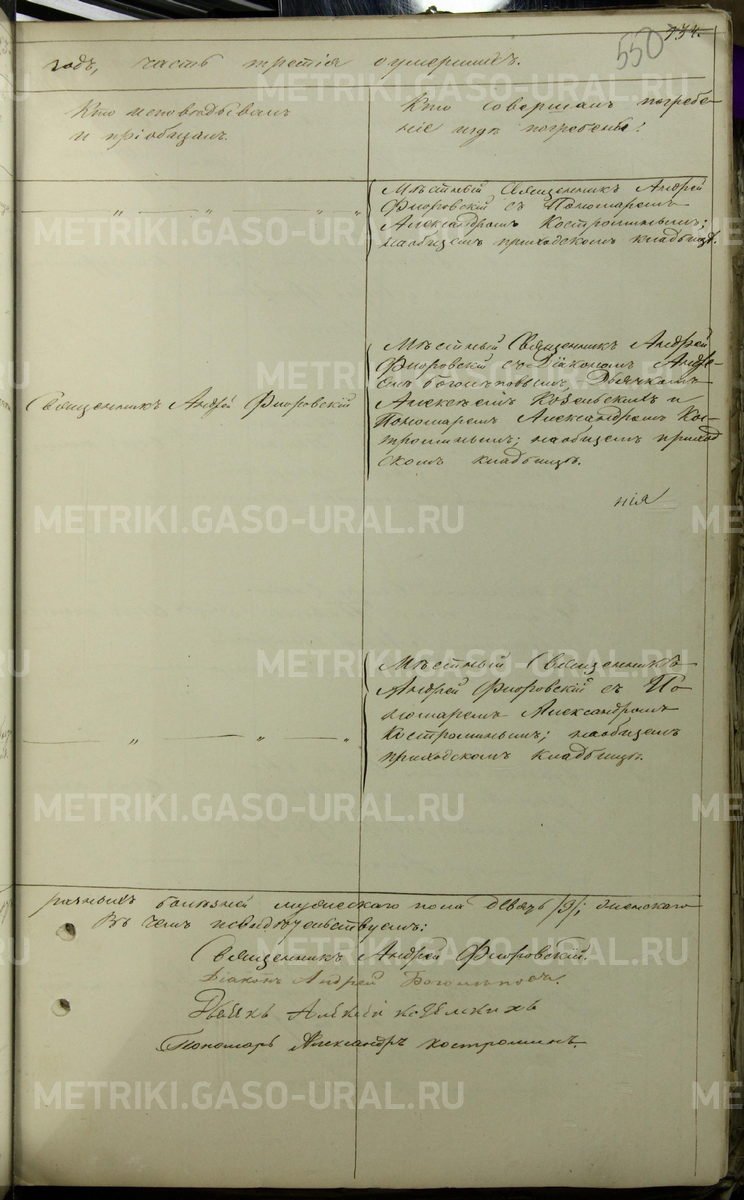 734.
550
годъ, часть третія о умершихъ.
Кто исповѣдывалъ
и пріобщалъ.
Кто совершалъ погребе-
ніе и гдѣ погребены?
Мѣстный Священникъ Андрей
Флоровскій съ Пономаремъ
Александромъ Костроминымъ;
на общемъ приходскомъ кладбищѣ.
Священникъ Андрей Флоровскій
Мѣстный Священникъ Андрей
Флоровскій съ Діакономъ Андре-
емъ Боголѣповымъ, Дьячкомъ
Алексѣемъ и
Пономаремъ Александромъ Кос-
троминымъ; на общемъ приход
скомъ кладбищѣ.
нія
Мѣстный Священникъ
Андрей Флоровскій съ По
номаремъ Александромъ
Костроминымъ; на общемъ
приходскомъ кладбищѣ.
болѣзней мужескаго пола девять /9/; женскаго
Въ чемъ и свидѣтельствуемъ:
Священникъ Андрей Флоровскій.
Діаконъ Андрей Боголѣповъ.
Дьячекъ Алексѣй
Пономарь Александръ Костроминъ.
METRIKI.GASO-URAL.RU